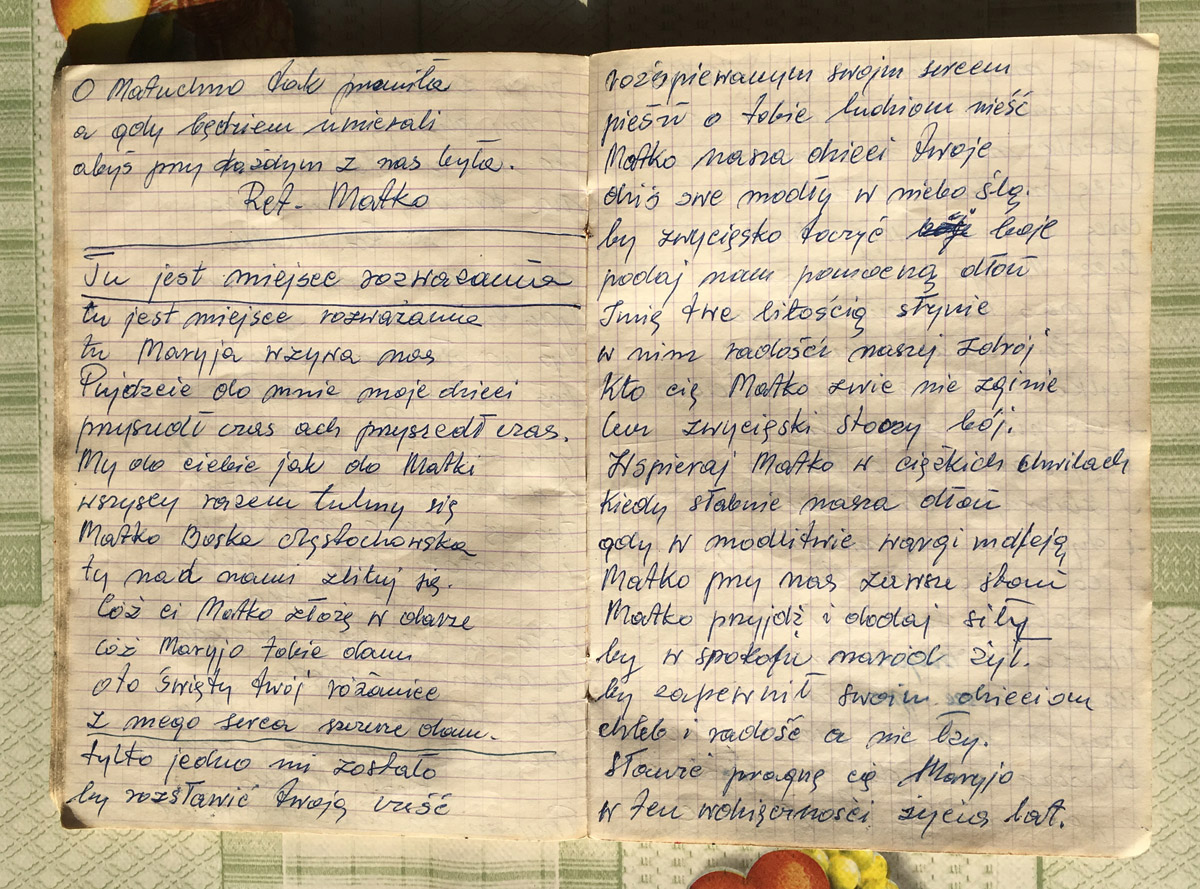 O Matuchno tak premiła
a gdy będziem umierali
abyś przy każdym z nas była.
Ref. Matko
Tu jest miejsce rozważania
tu jest miejsce rozważania
tu Maryja wzywa nas
Pujdzcie do mnie moje dzieci
przyszedł czas ach przyszedł czas.
My do ciebie jak do Matki
wszyscy razem tulmy się
Matko Boska Częstochowska
ty nad nami zlituj się.
Cóż ci Matko złożę w darze
cóż Maryjo tobie dam
oto święty twój różaniec
z mego serca szczere dam.
tylko jedno mi zostało
by rozsławić twoją cześć
rozśpiewanym swojm sercem
pieśń o tobie ludziom nieść
Matko nasza dzieci twoje
dziś swe modły w niebo ślą.
by zwycięsko toczyć boje
podaj nam pomocną dłoń
Imię twe litością słynie
w nim radości naszej zdrój
Kto cię Matko zwie nie zginie
lecz zwycięski stoczy bój.
Wspieraj Matko w ciężkich chwilach
Kiedy słabnie nasza dłoń
gdy w modlitwie wargi mdleją
Matko przy nas zawsze stoań
Matko przyjdź i dodaj siły
by w spokoju naród żył.
by zapewnił swoim dzieciom
chleb i radość a nie łzy.
Sławić pragnę cię Maryjo
w ten wdzięczności życia lat.